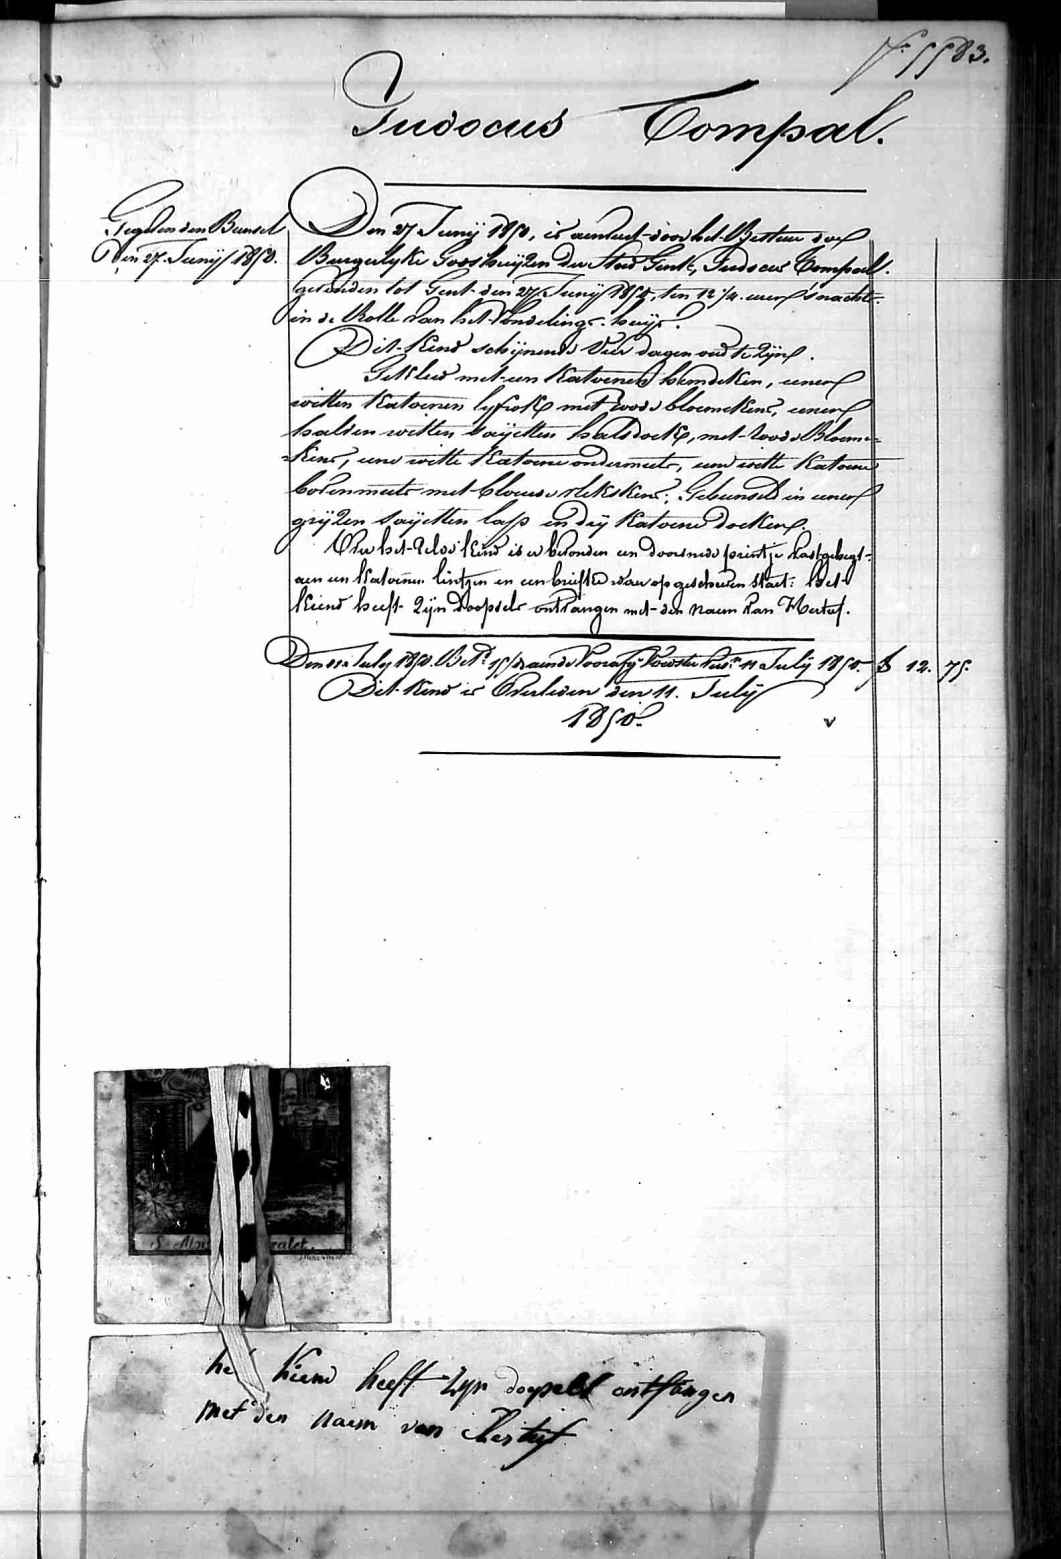 N° 5583.
Judocus Compal.
Gegeven den Bunsel
Den 27. Junij 1850.
Den 27 Junij 1850, is aenveert door het Bestuer der
Burgerlyke Godshuijzen der Stad Gent, Judocus Compal.
gevonden tot Gent den 27 Junij 1850, ten 12 1/4 uren 's nachts.
in de Rolle van het Vondelings-huijs.
Dit Kind schijnende Vier dagen oud te Zijn.
Gekleed met een Katoenen hemdeken, eenen
witten Katoenen lyfrok met roode bloemekens, eenen
halven witten saijetten halsdoek, met roode Bloeme=
=kens, eene witte Katoene ondermuts, eene witte Katoene
bovenmuts met blauwe stekskens; Gebunseld in eenen
grijzen saijetten lap en drij Katoene doeken.
Over het zelve Kind is er bevonden een doorsnede printje vastgehegt
aen een Katoenen lintjen en een briefke waer op geschreven staet: het
Kiend heeft Zijn doopsels ontvangen met den naem van Kertuf.
Den 11 July 1850. Bet. 11 July 1850. fs 12. 75.
Dit Kind is Overleden den 11. July
1850.
v
S. Ma
het Kiend heeft Zyn doopsels ontfangen
met den naem van Kertuf